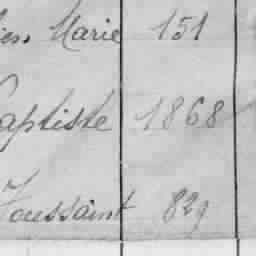 Marie 151
Baptiste 1868
Toussaint 829